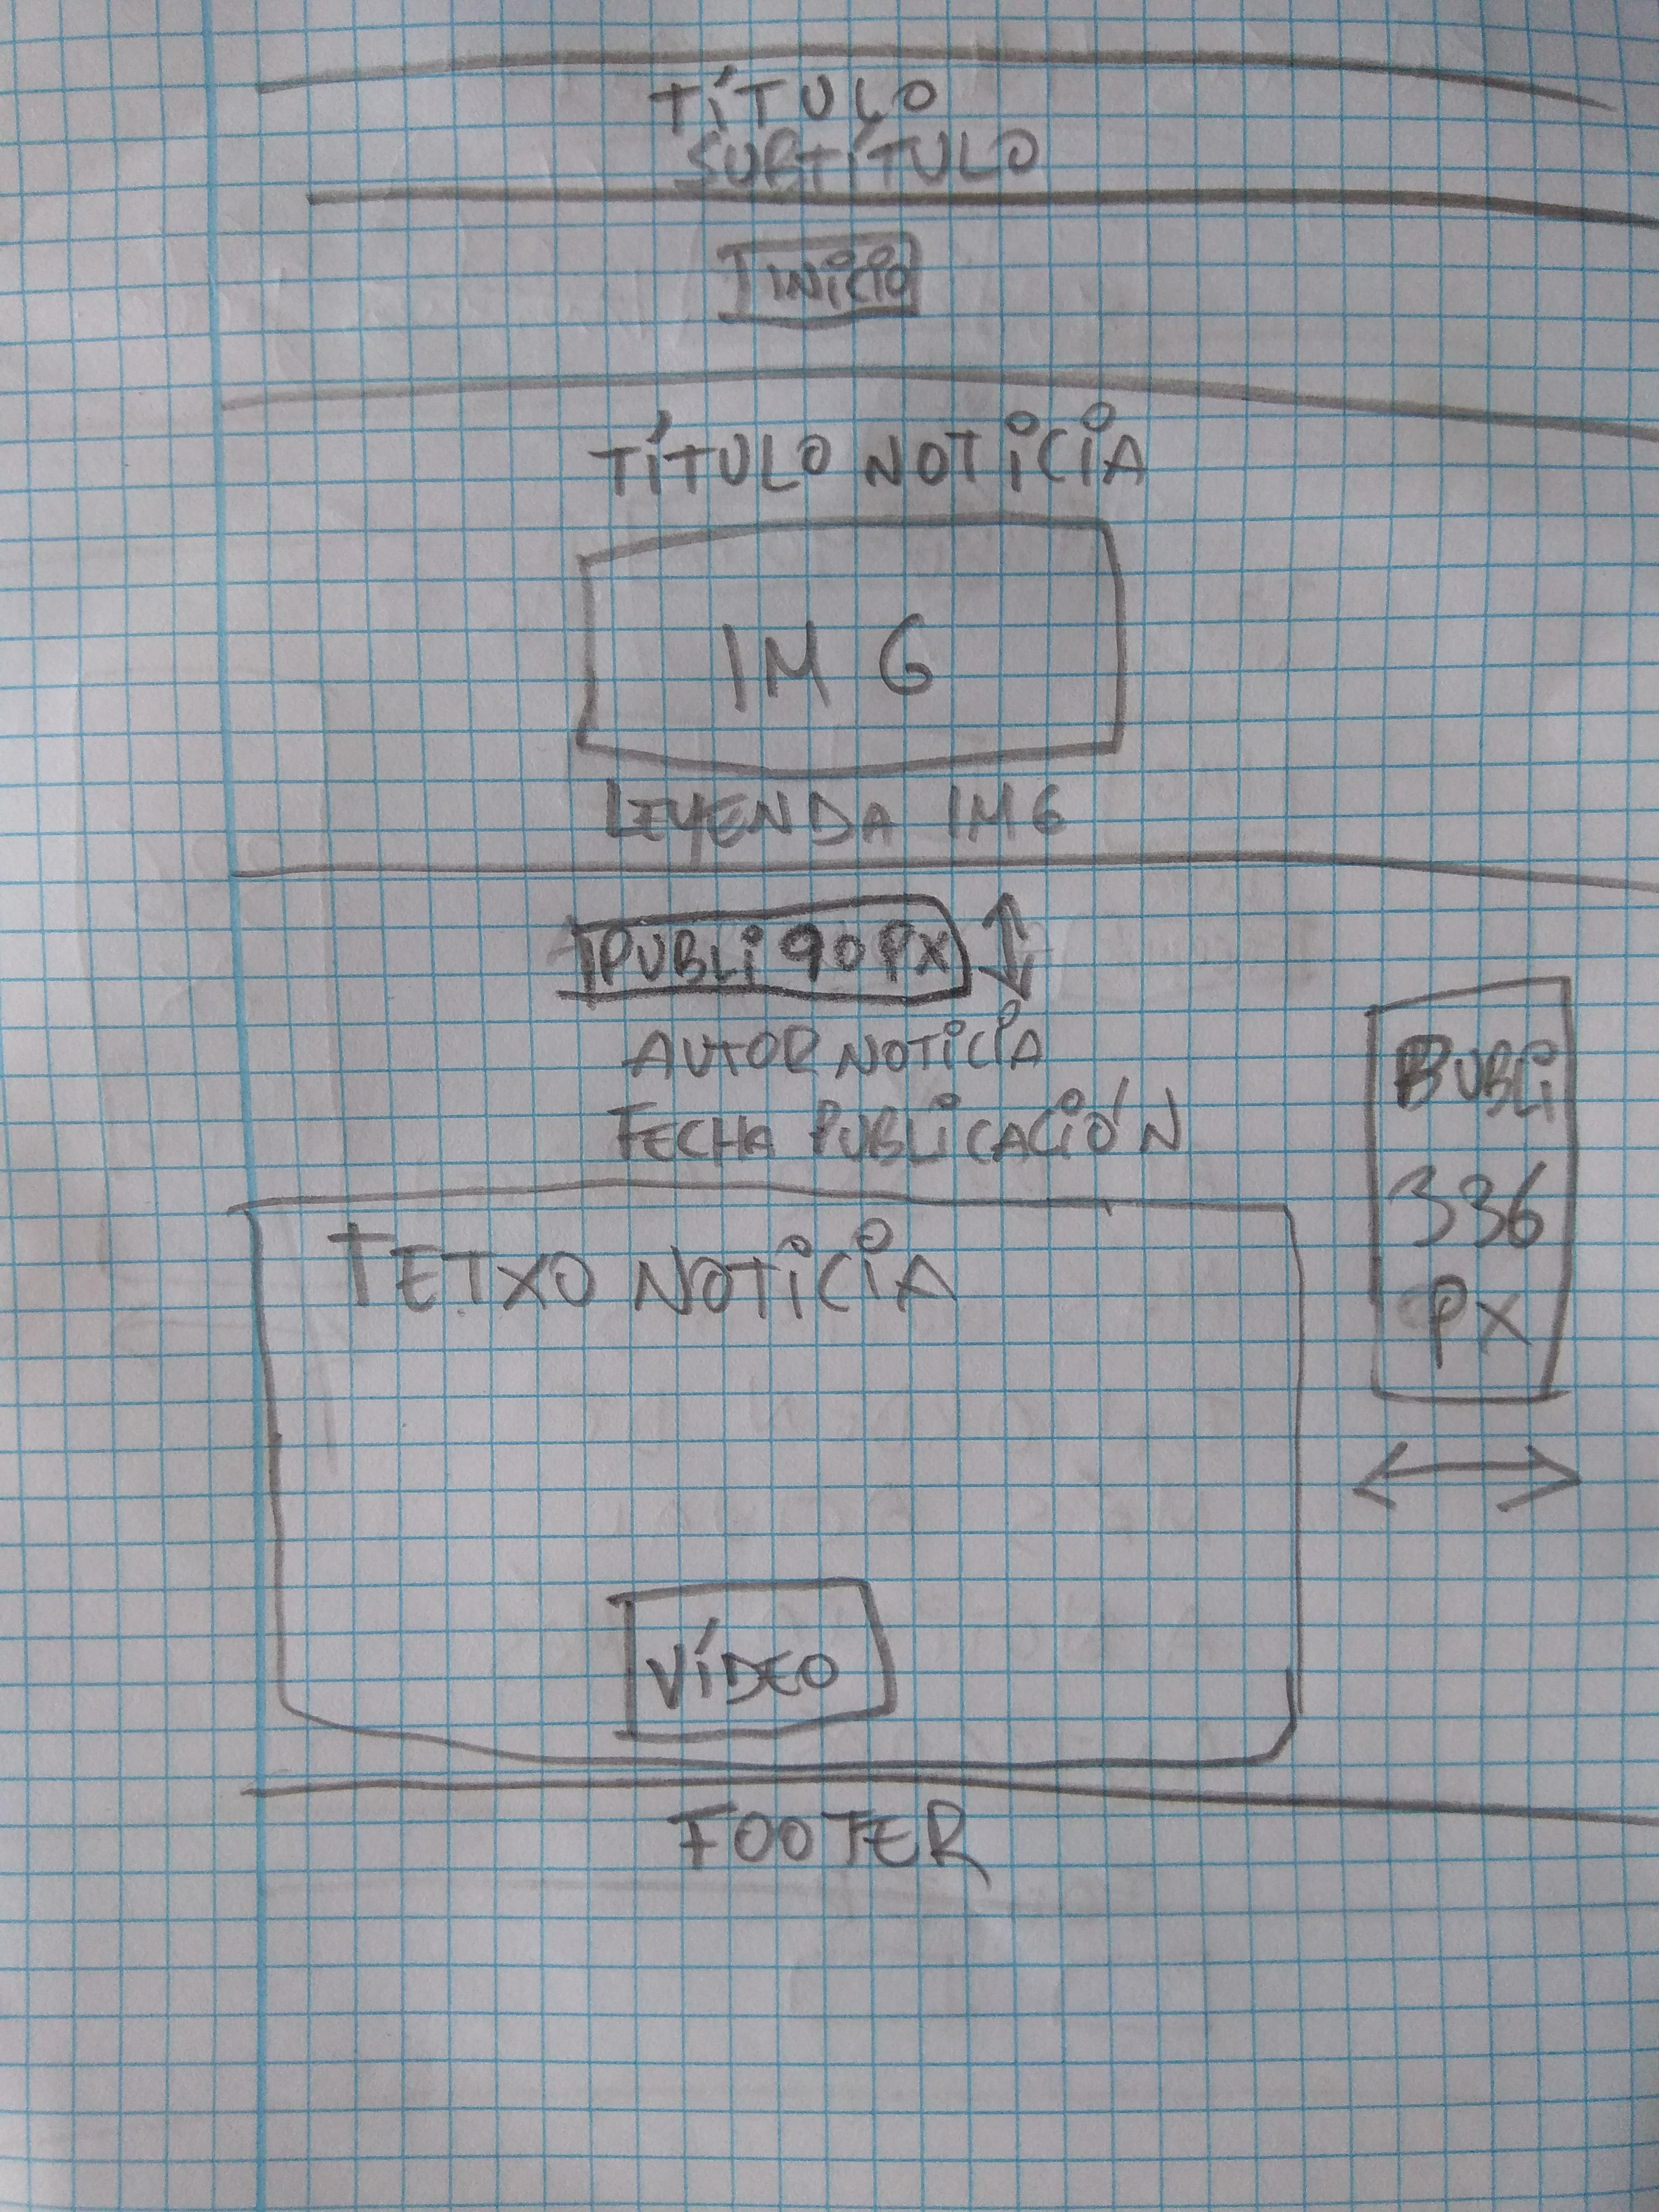 TÍTULO
SUBTÍTULO
INiCiO
TÍTULO NOTiCiA
IMG
LEYENDA IMG
PUBLi 90 PX
AUTOR NOTiCiA
FECHA PUBLiCACiÓN
PUBLi
336
PX
TETXO NOTiCiA
VÍDEO
FOOTER